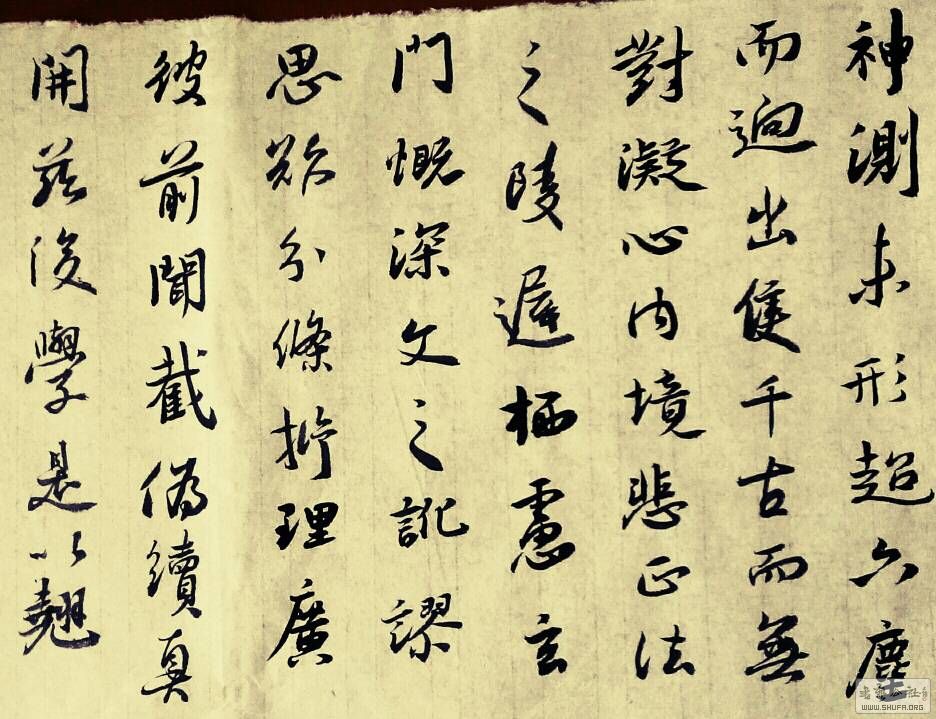 神測未形超六塵
而迥出隻千古而無
對凝心內境悲正法
之陵遲栖慮玄
門慨深文之訛謬
思欲分條抑理廣
彼前聞截偽續真
開茲後學是以翹
WWW.SHUFA.ORG